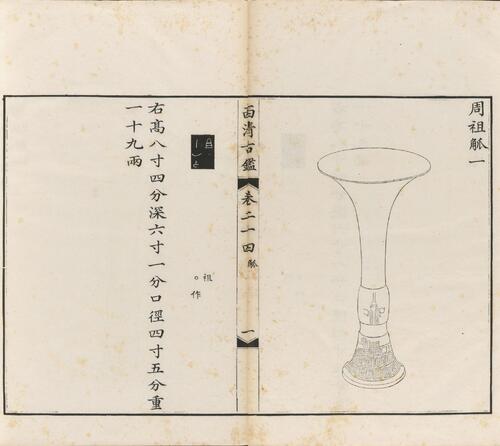 周祖觚一
西清古鑑
卷二十四
觚
一
祖
作
右高八寸四分深六寸一分口徑四寸五分重
一十九兩